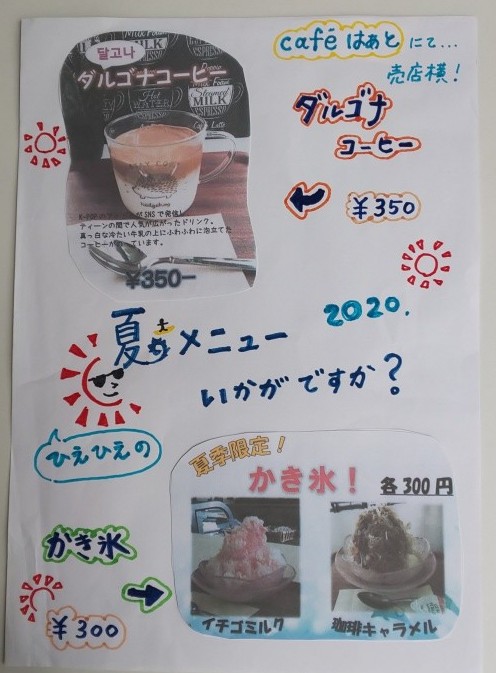 café はぁと にて...
売店横！
달고나
ダルゴナコーヒー
ダルゴナ
コーヒー
¥350
SNSで発信
ティーンの間で人気が広がったドリンク。
真っ白な冷たい牛乳の上にふわふわに泡立てた
コーヒーが ています。
¥350-
2020.
夏メニュー
いかがですか？
ひえひえの
かき氷
¥300
夏季限定！
かき氷！ 各300円
イチゴミルク
珈琲キャラメル